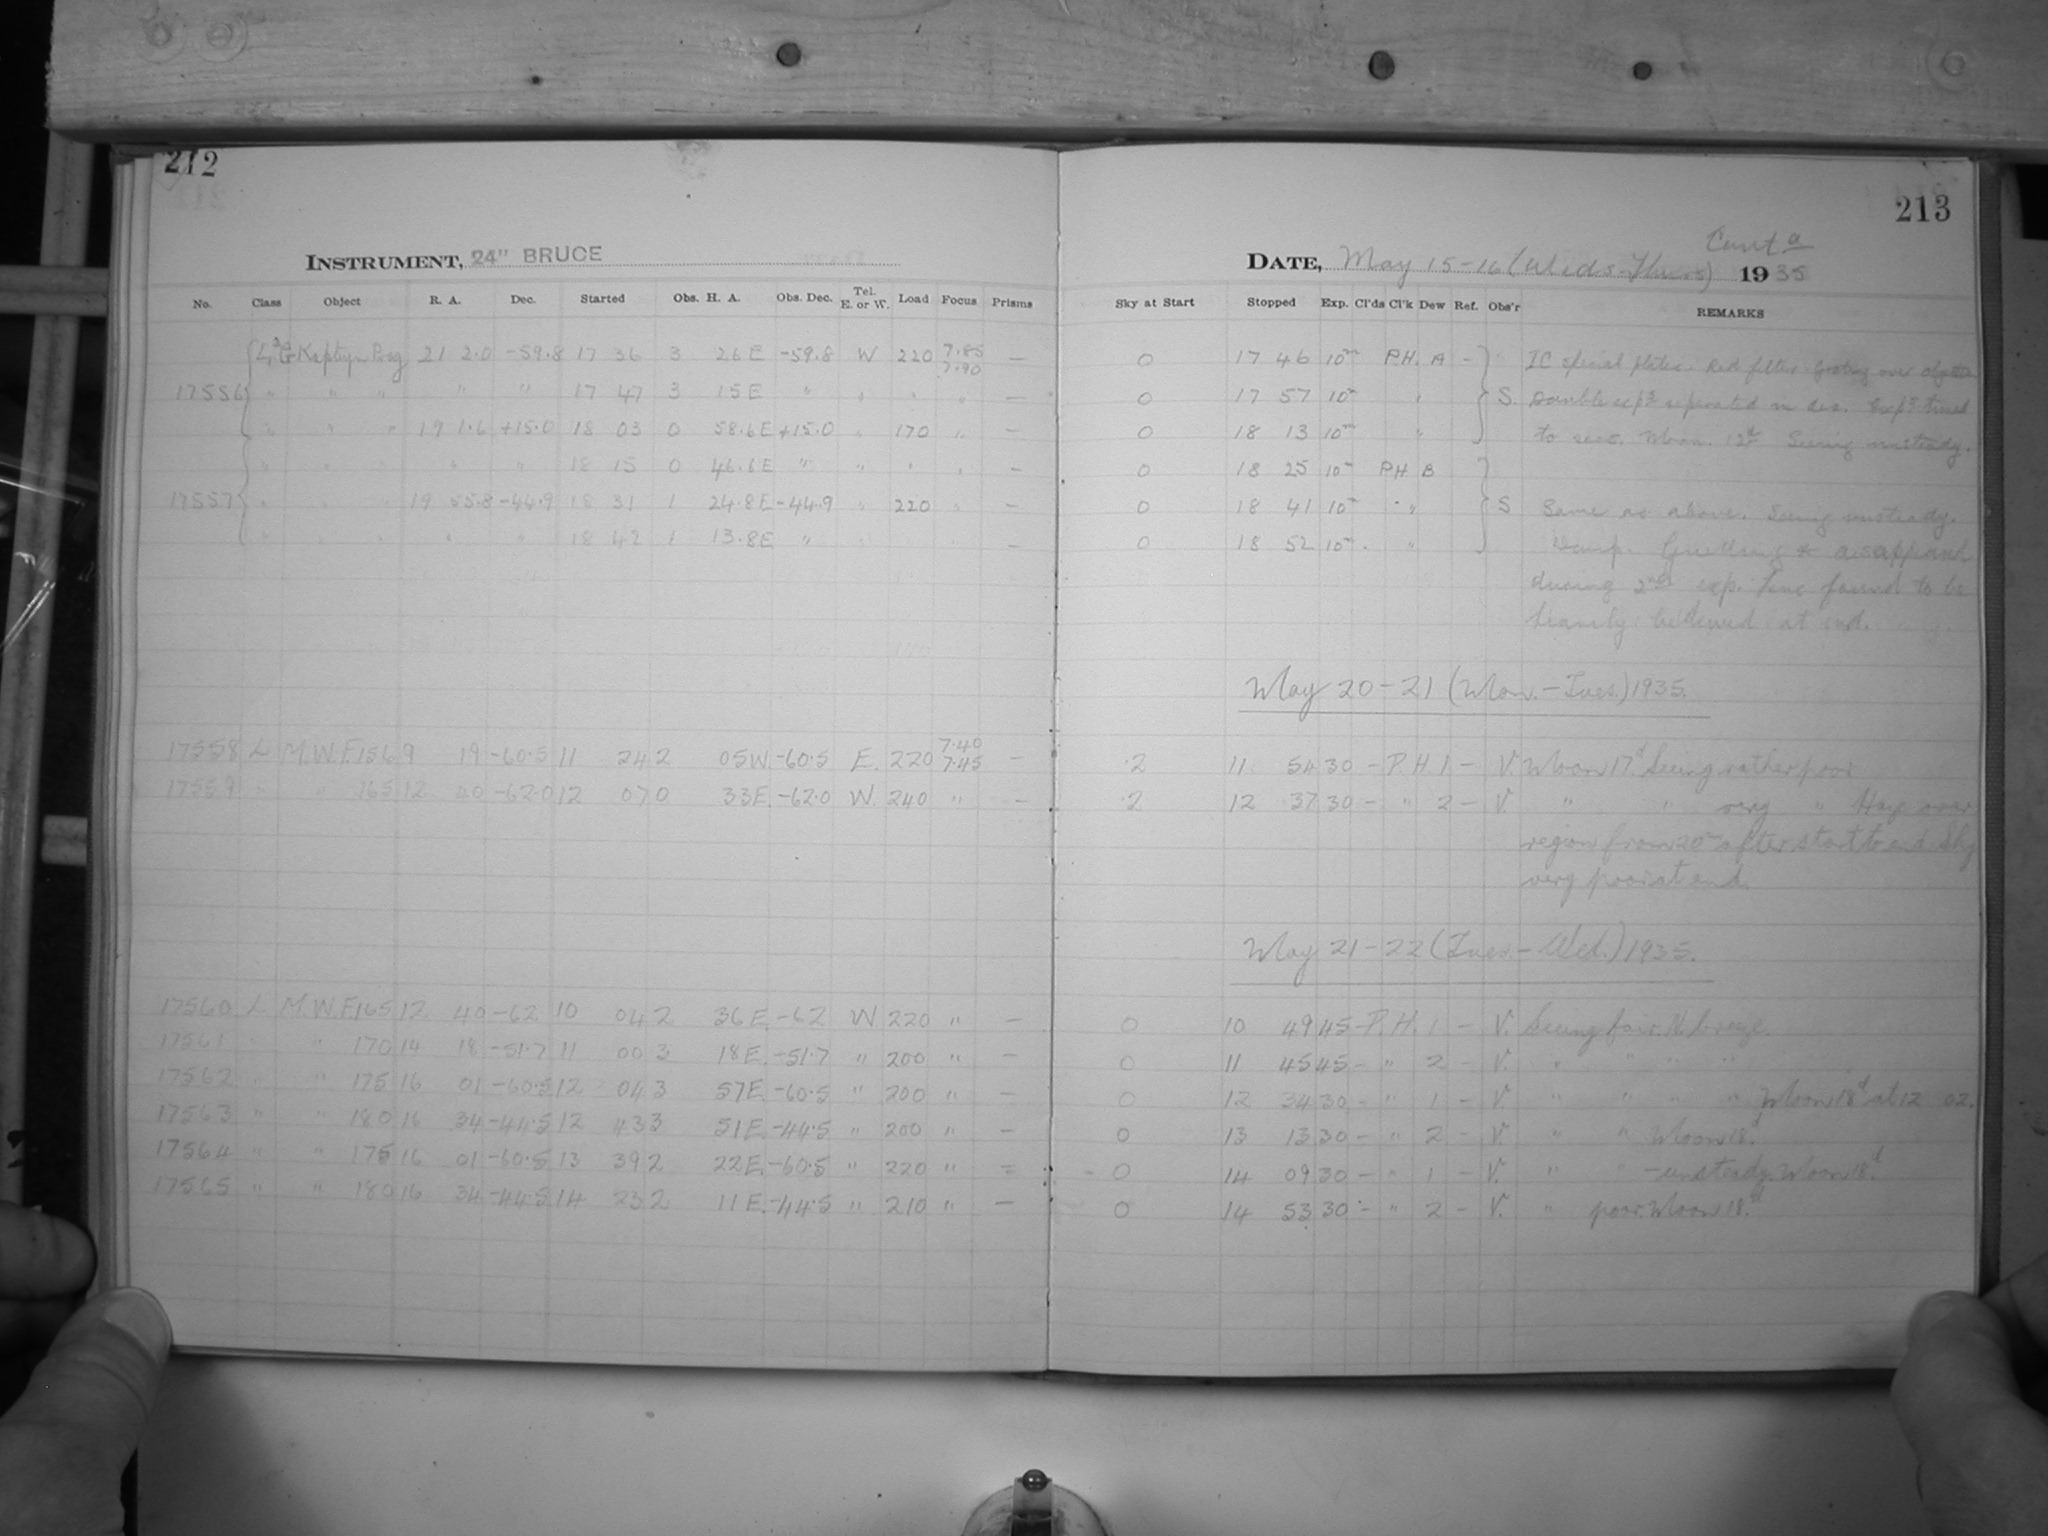 212
INSTRUMENT, 24" BRUCE
No. Class Object R. A. Dec. Started Obs. H. A. Obs. Dec. Tel. E. or W. Load Focus Prisms
Kapteyn 21 2.0 -59.8 17 36 3 26 E -59.8 W 220 7.85 7.90 —
17556 " " " " " 17 47 3 15 E " " " " —
" " " 19 1.6 +15.0 18 03 0 58.6 E +15.0 " 170 " —
" " " " " 18 15 0 46.6 E " " " " —
17557 " " " 19 55.8 -44.9 18 31 1 24.8 E -44.9 " 220 " —
" " " " " 18 42 1 13.8 E " —
17558 L M.W.F. 156 9 19 -60.5 11 24 2 05 W. -60.5 E. 220 7.40 7.45 —
17559 " " 165 12 40 -62.0 12 07 0 33 E. -62.0 W. 240 " —
17560 L. M.W.F. 165 12 40 -62 10 04 2 36 E. -62 W 220 " —
17561 " " 170 14 18 -51.7 11 00 3 18 E. -51.7 " 200 " —
17562 " " 175 16 01 -60.5 12 04 3 57 E. -60.5 " 200 " —
17563 " " 180 16 34 -44.5 12 43 3 51 E. -44.5 " 200 " —
17564 " " 175 16 01 -60.5 13 39 2 22 E. -60.5 " 220 " =
17565 " " 180 16 34 -44.5 14 23 2 11 E. -44.5 " 210 " —
213
DATE, May 15-16 (Weds-Thurs) Cont d 1935
Sky at Start Stopped Exp. Cl'ds Cl'k Dew Ref. Obs'r REMARKS
0 17 46 10m P.H. A - IC special plates. Red filter. Grating over
0 17 57 10m " S. Double exps separated in dec. Exps timed
0 18 13 10m " to secs. Moon. 12d Seeing unsteady.
0 18 25 10m P.H. B
0 18 41 10m " S Same as above. Seeing unsteady.
0 18 52 10m. " Damp. Guiding * disappeared
during 2nd exp. Lens found to be
heavily bedewed at end.
May 20-21 (Mon.-Tues.) 1935.
.2 11 54 30 - P.H. 1 - V. Moon 17d. Seeing rather poor
.2 12 37 30 - " 2 - V. " " very " Haze over
region from 20m after start to end. Sky
very poor at end.
May 21-22 (Tues.-Wed.) 1935.
0 10 49 45 - P.H. 1 - V. Seeing fair. N. breeze.
0 11 45 45 - " 2 - V. " " " "
0 12 34 30 - " 1 - V. " " " " Moon 18d at 12 02.
0 13 13 30 - " 2 - V. " " Moon 18d.
0 14 09 30 - " 1 - V. " " -unsteady. Moon 18d.
0 14 53 30 - " 2 - V. " poor. Moon 18d.